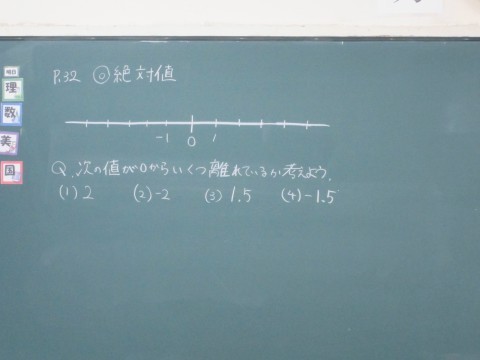 P.32 ◎絶対値
-1 0 1
Q.次の値が0からいくつ離れているか考えよう.
(1) 2 (2) -2 (3) 1.5 (4) -1.5
理
数
美
国